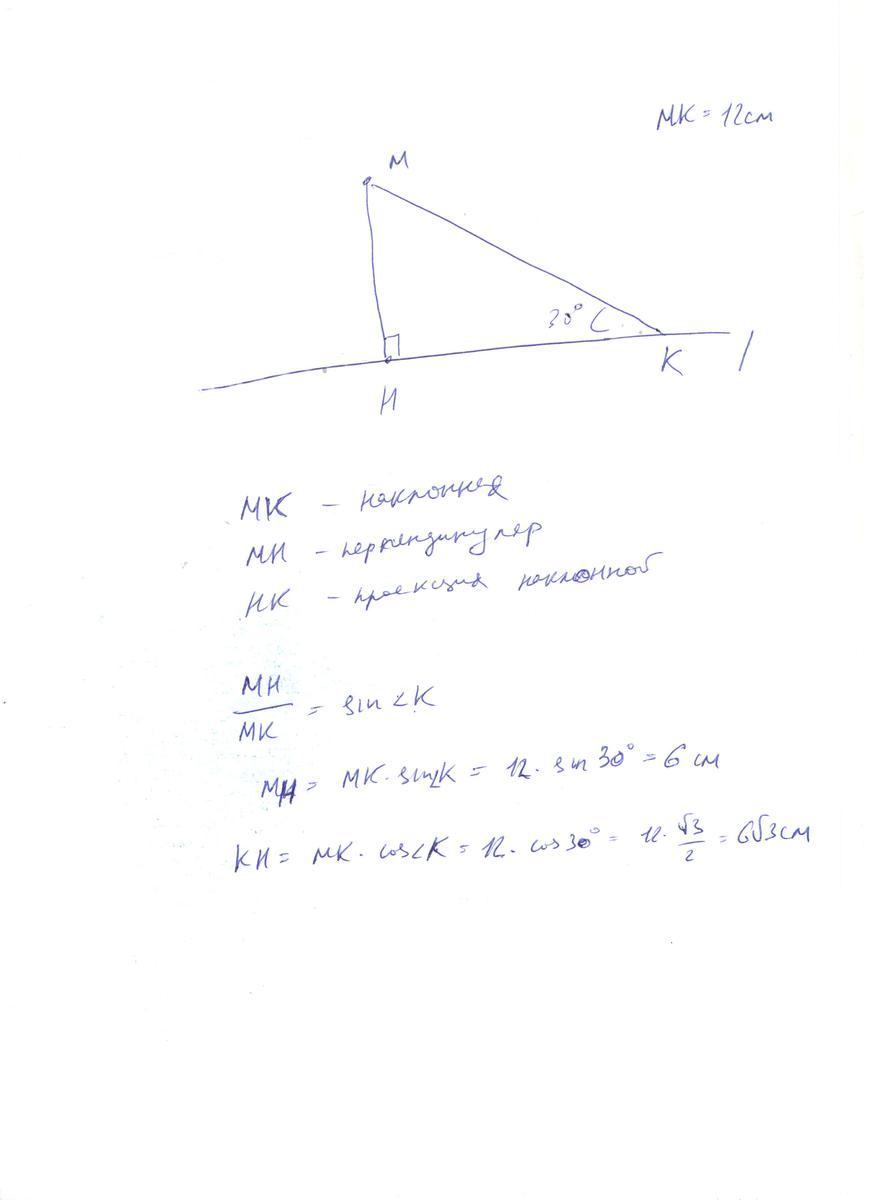 MK = 12см
M
30°
K
l
H
MK - наклонная
MH - перпендикуляр
HK - проекция наклонной
MH/MK = sin∠K
MH = MK · sin∠K = 12 · sin 30° = 6 см
KH = MK · cos∠K = 12 · cos 30° = 12 · √3/2 = 6√3 см